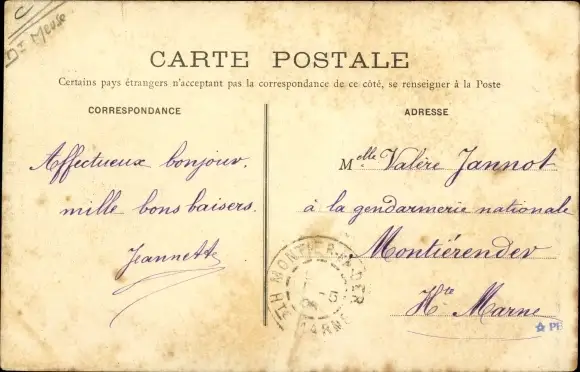 Dt Meuse
CARTE POSTALE
Certains pays étrangers n'acceptant pas la correspondance de ce côté, se renseigner à la Poste
CORRESPONDANCE
Affectueux bonjour.
mille bons baisers.
Jeannette
ADRESSE
Melle Valère Jannot
à la gendarmerie nationale
Montiérender
Hte Marne
MONTIER-EN-DER
HTE MARNE
PF